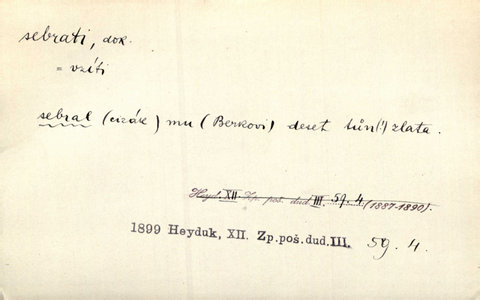 sebrati, dok.
= vzíti
sebral (cizák) mu (Berkovi) deset tůn(!) zlata.
Heyd. XII. Zp. poš. dud III. 59. 4 (1887-1890).
1899 Heyduk, XII. Zp.poš.dud.III. 59. 4.